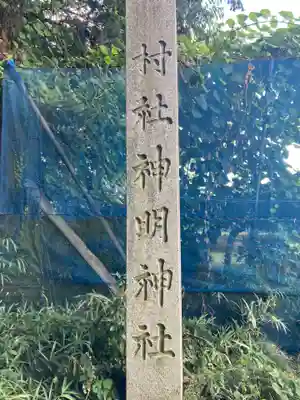 村社神明神社